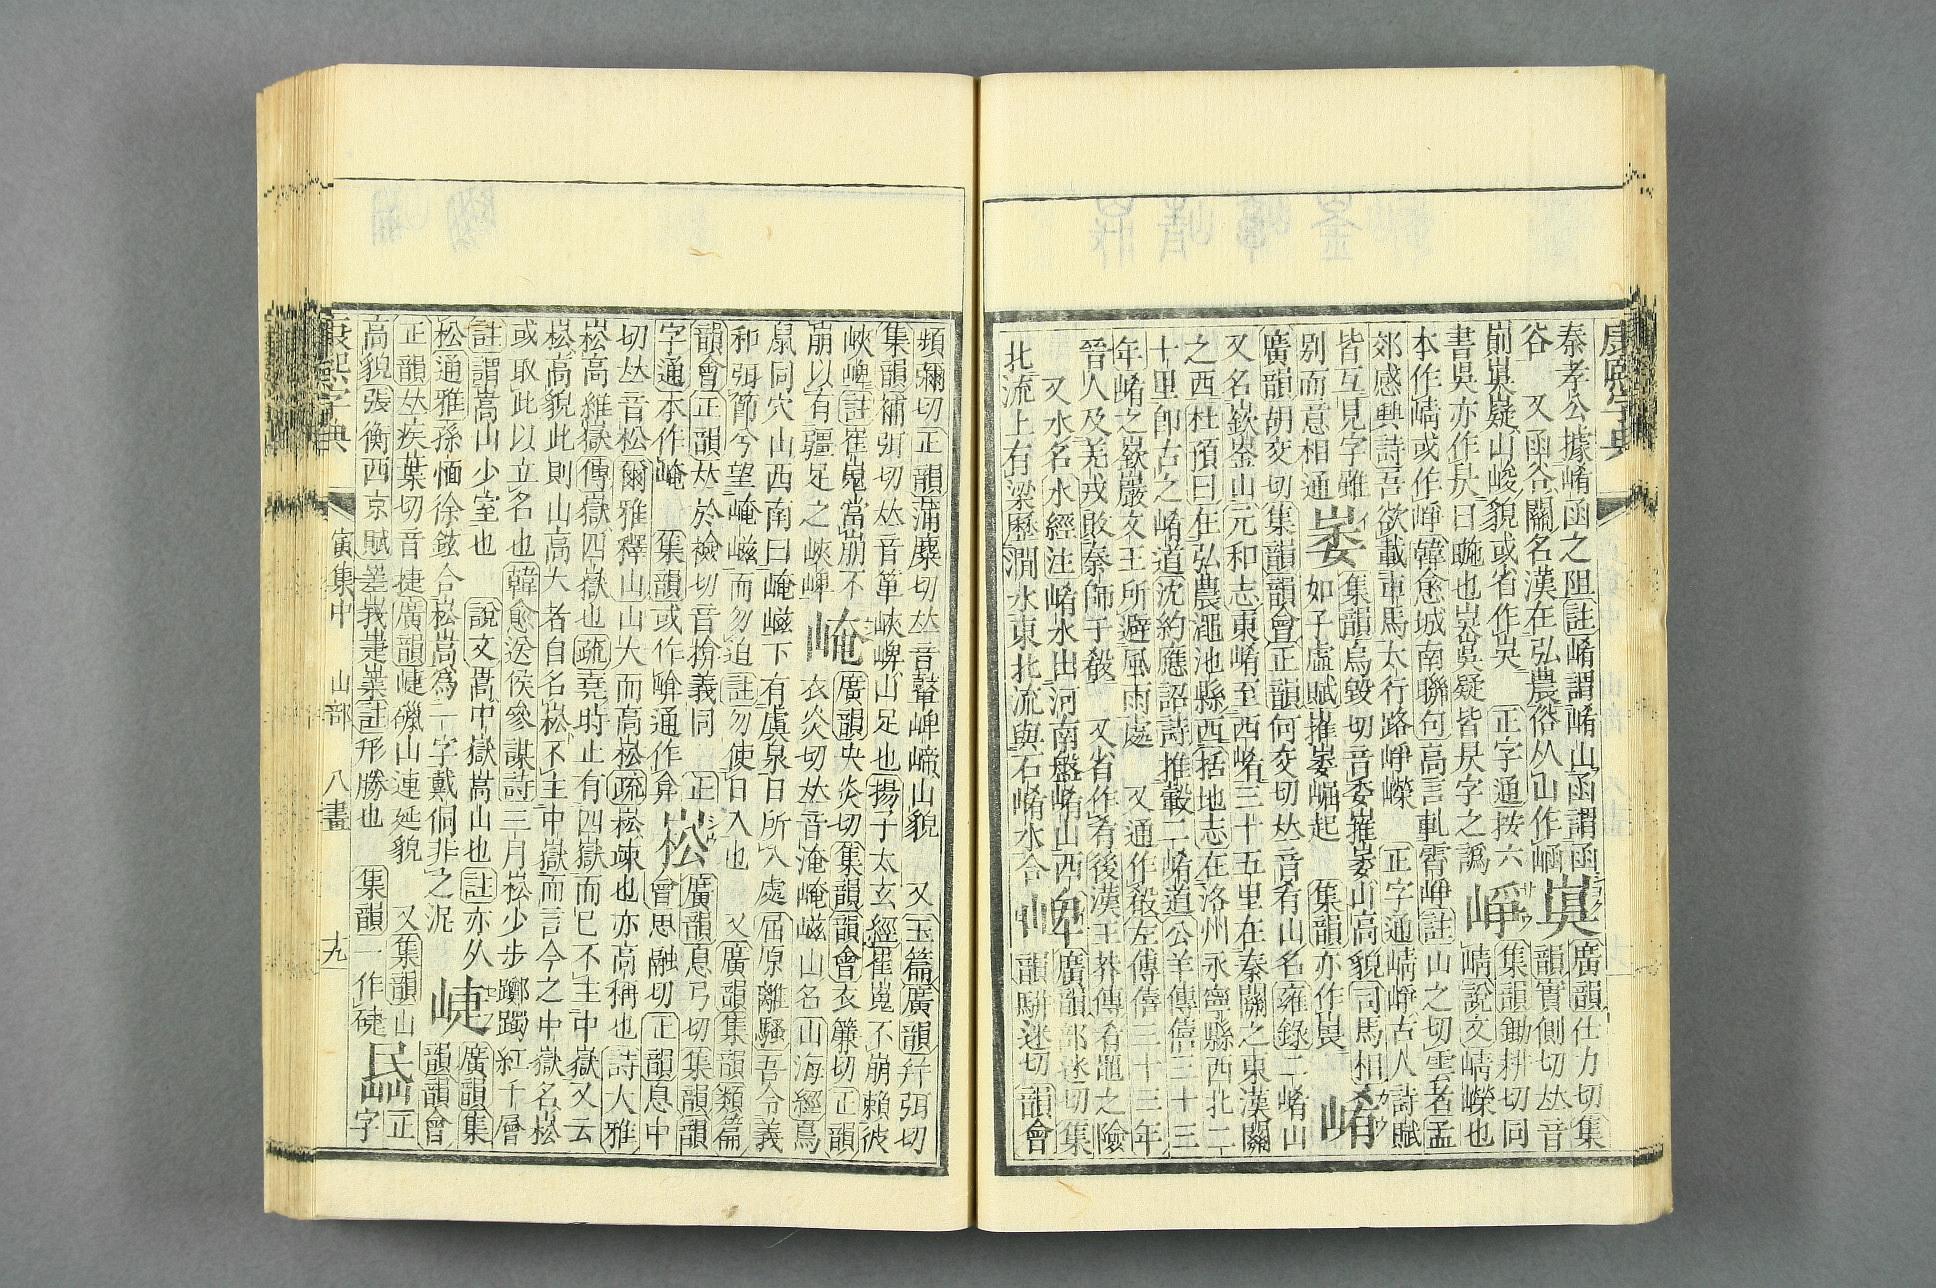 康熙字典
秦孝公據崤函之阻註崤謂崤山函謂函 廣韻仕力切集
谷 又函谷關名漢在弘農俗从山作崡 韻實側切𠀤音
嶷山峻貌或省作 正字通按六 崢 集韻鋤耕切同
書吳亦作昃日也 皆昃字之譌 崝說文崝嶸也
本作崝或作崢韓愈城南聯句高言軋霄崢註山之切雲者孟
郊感興詩吾欲載車馬太行路崢嶸 正字通崝崢古人詩賦
皆互見字雖 崣 集韻鳥毀切音委崣山高貌司馬相
別而意相通 如子虛賦摧崣崛起 集韻亦作 崤
廣韻胡交切集韻韻會正韻何交切𠀤音肴山名雍錄二崤山
又名嶔崟山元和志東崤至西崤三十五里在秦關之東漢關
之西杜預曰在弘農澠池縣西括地志在洛州永寧縣西北二
十里卽古之崤道沈約應詔詩推轂二崤道公羊傳僖三十三
年崤之嶔巖文王所避風雨處 又通作殽左傳僖三十三年
晉人及羌戎敗秦師于殽 又省作肴後漢王莽傳肴黽之險
又水名水經注崤水出河南盤崤山西 崥 廣韻部迷切集
北流上有梁歷澗水東北流與石崤水合 韻駢迷切韻會
頻彌切正韻蒲麋切𠀤音鼙崥崹山貌 又玉篇廣韻幷弭切
集韻補弭切𠀤音箄峽崥山足也揚子太玄經崔嵬不崩賴彼
峽崥註崔嵬當崩不 崦 廣韻央炎切集韻韻會衣廉切正韻
崩以有疆足之峽崥 衣炎切𠀤音淹崦嵫山名山海經鳥
鼠同穴山西南曰崦嵫下有虞泉日所入處屈原離騷吾令羲
和弭節兮望崦嵫而勿迫註勿使日入也 又廣韻集韻類篇
韻會正韻𠀤於檢切音揜義同 正 崧 廣韻息弓切集韻韻
字通本作崦 集韻或作通作弇 會思融切正韻息中
切𠀤音松爾雅釋山山大而高崧疏崧竦也亦高稱也詩大雅
崧高維嶽傳嶽四嶽也疏堯時止有四嶽而已不主中嶽又云
崧高貌此則山高大者自名崧不主中嶽而言今之中嶽名崧
或取此以立名也韓愈送侯參謀詩三月崧少步躑躅紅千層
註謂嵩山少室也 說文嵩中嶽嵩山也註亦从 崨 廣韻集
松通雅孫愐徐鉉合崧嵩為一字戴侗非之泥 韻韻會正
正韻𠀤疾葉切音捷廣韻崨山連延貌 又集韻山
高貌張衡西京賦嵳峩崨嶪註形勝也 集韻一作 字
康熙字典 寅集中 山部 八畫 十九